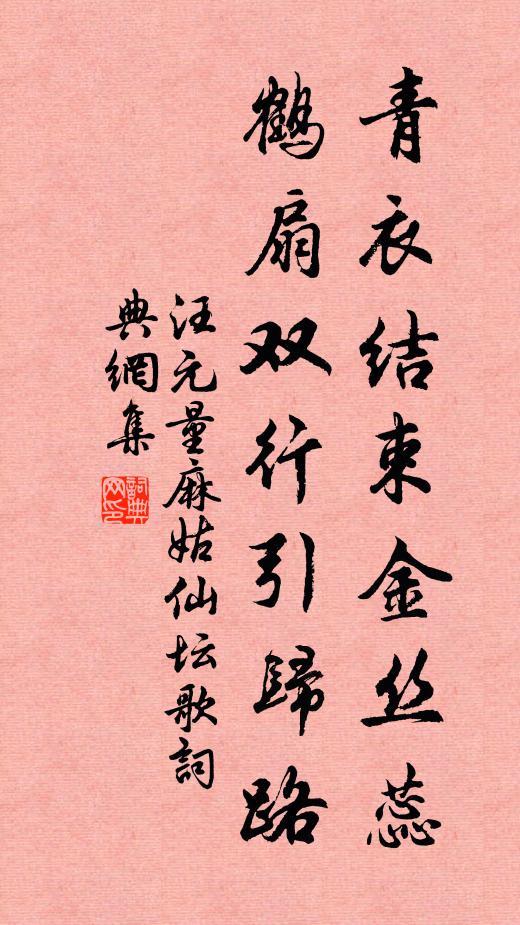 青衣结束金丝蕊
鹤扇双行引歸路
汪元量麻姑仙坛歌詞
典網集
詞典网印